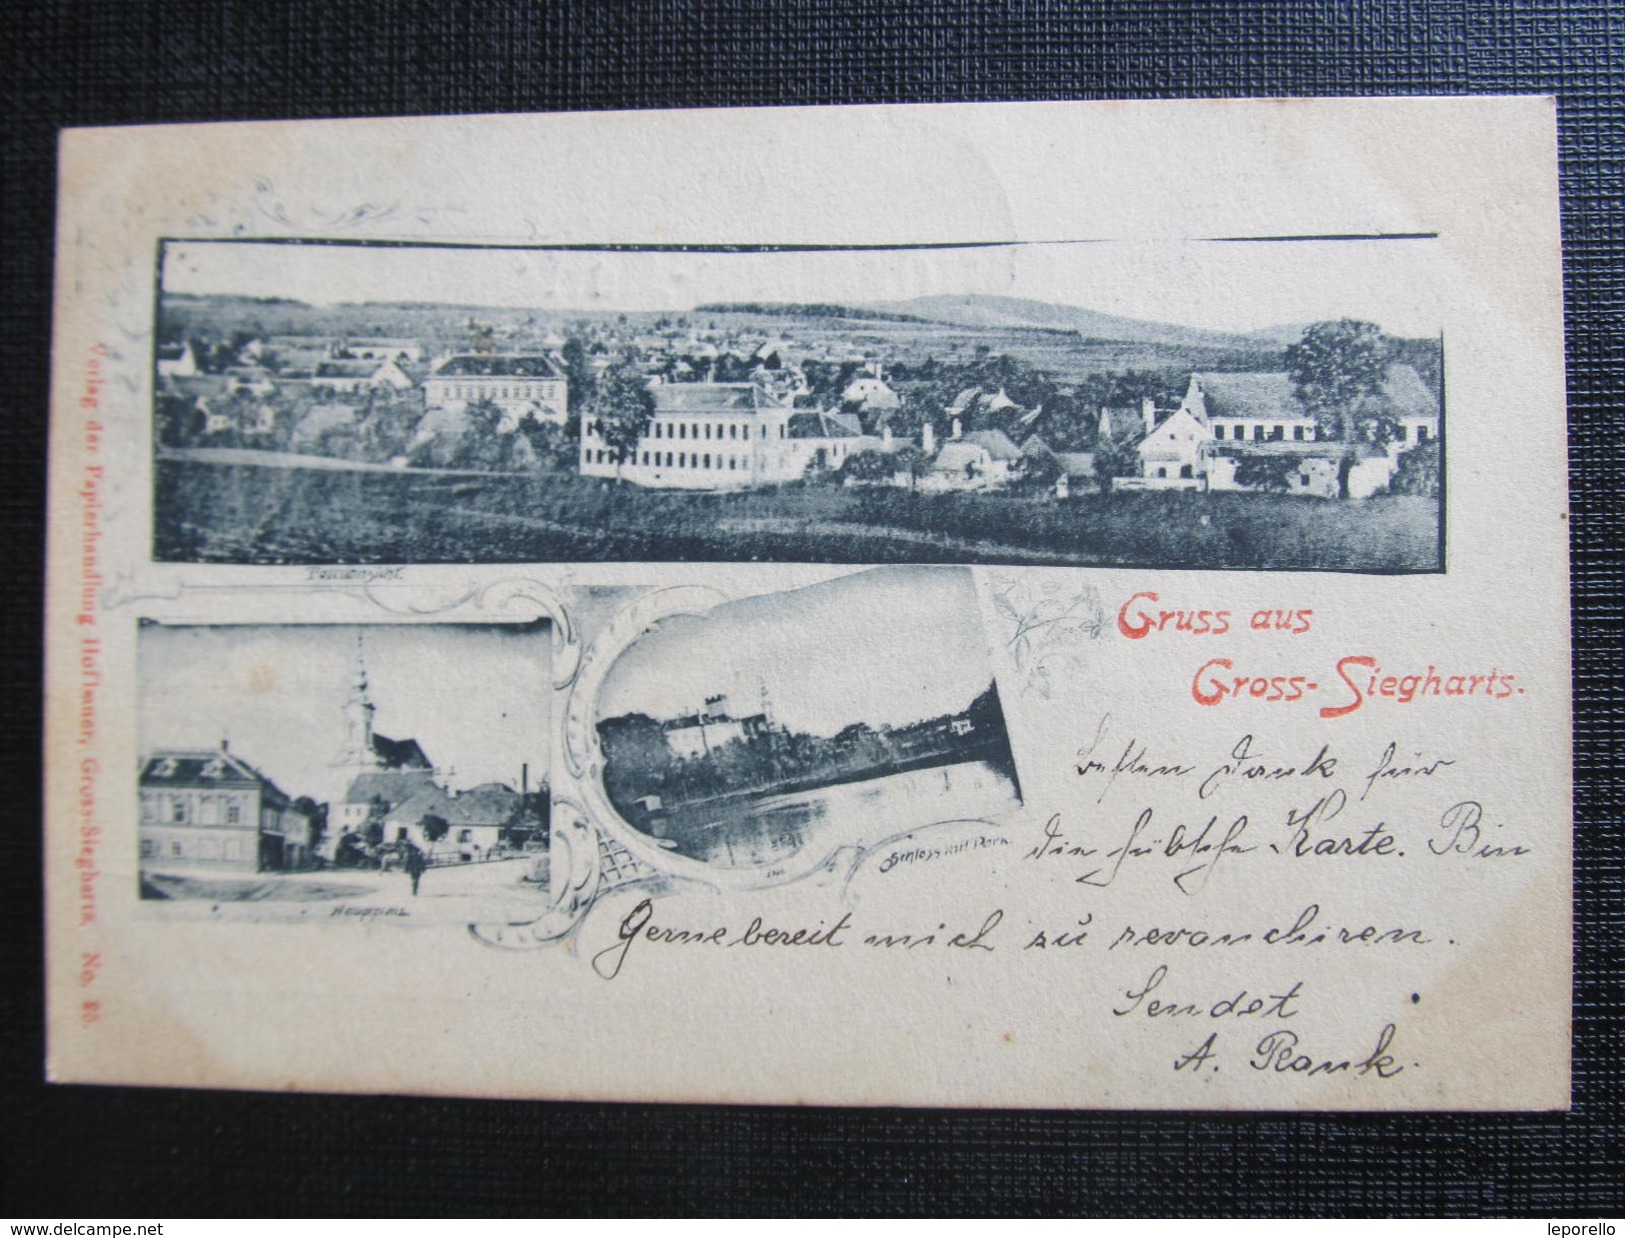 Totalansicht.
Gruss aus
Gross-Siegharts.
Hauptplatz.
Schloss mit Park.
Besten Dank für
die hübsche Karte. Bin
Gerne bereit mich zu revanchiren.
Sendet
A. Plank.
Verlag der Papierhandlung Hoflmer, Gross-Siegharts, No.
www.delcampe.net
leporello